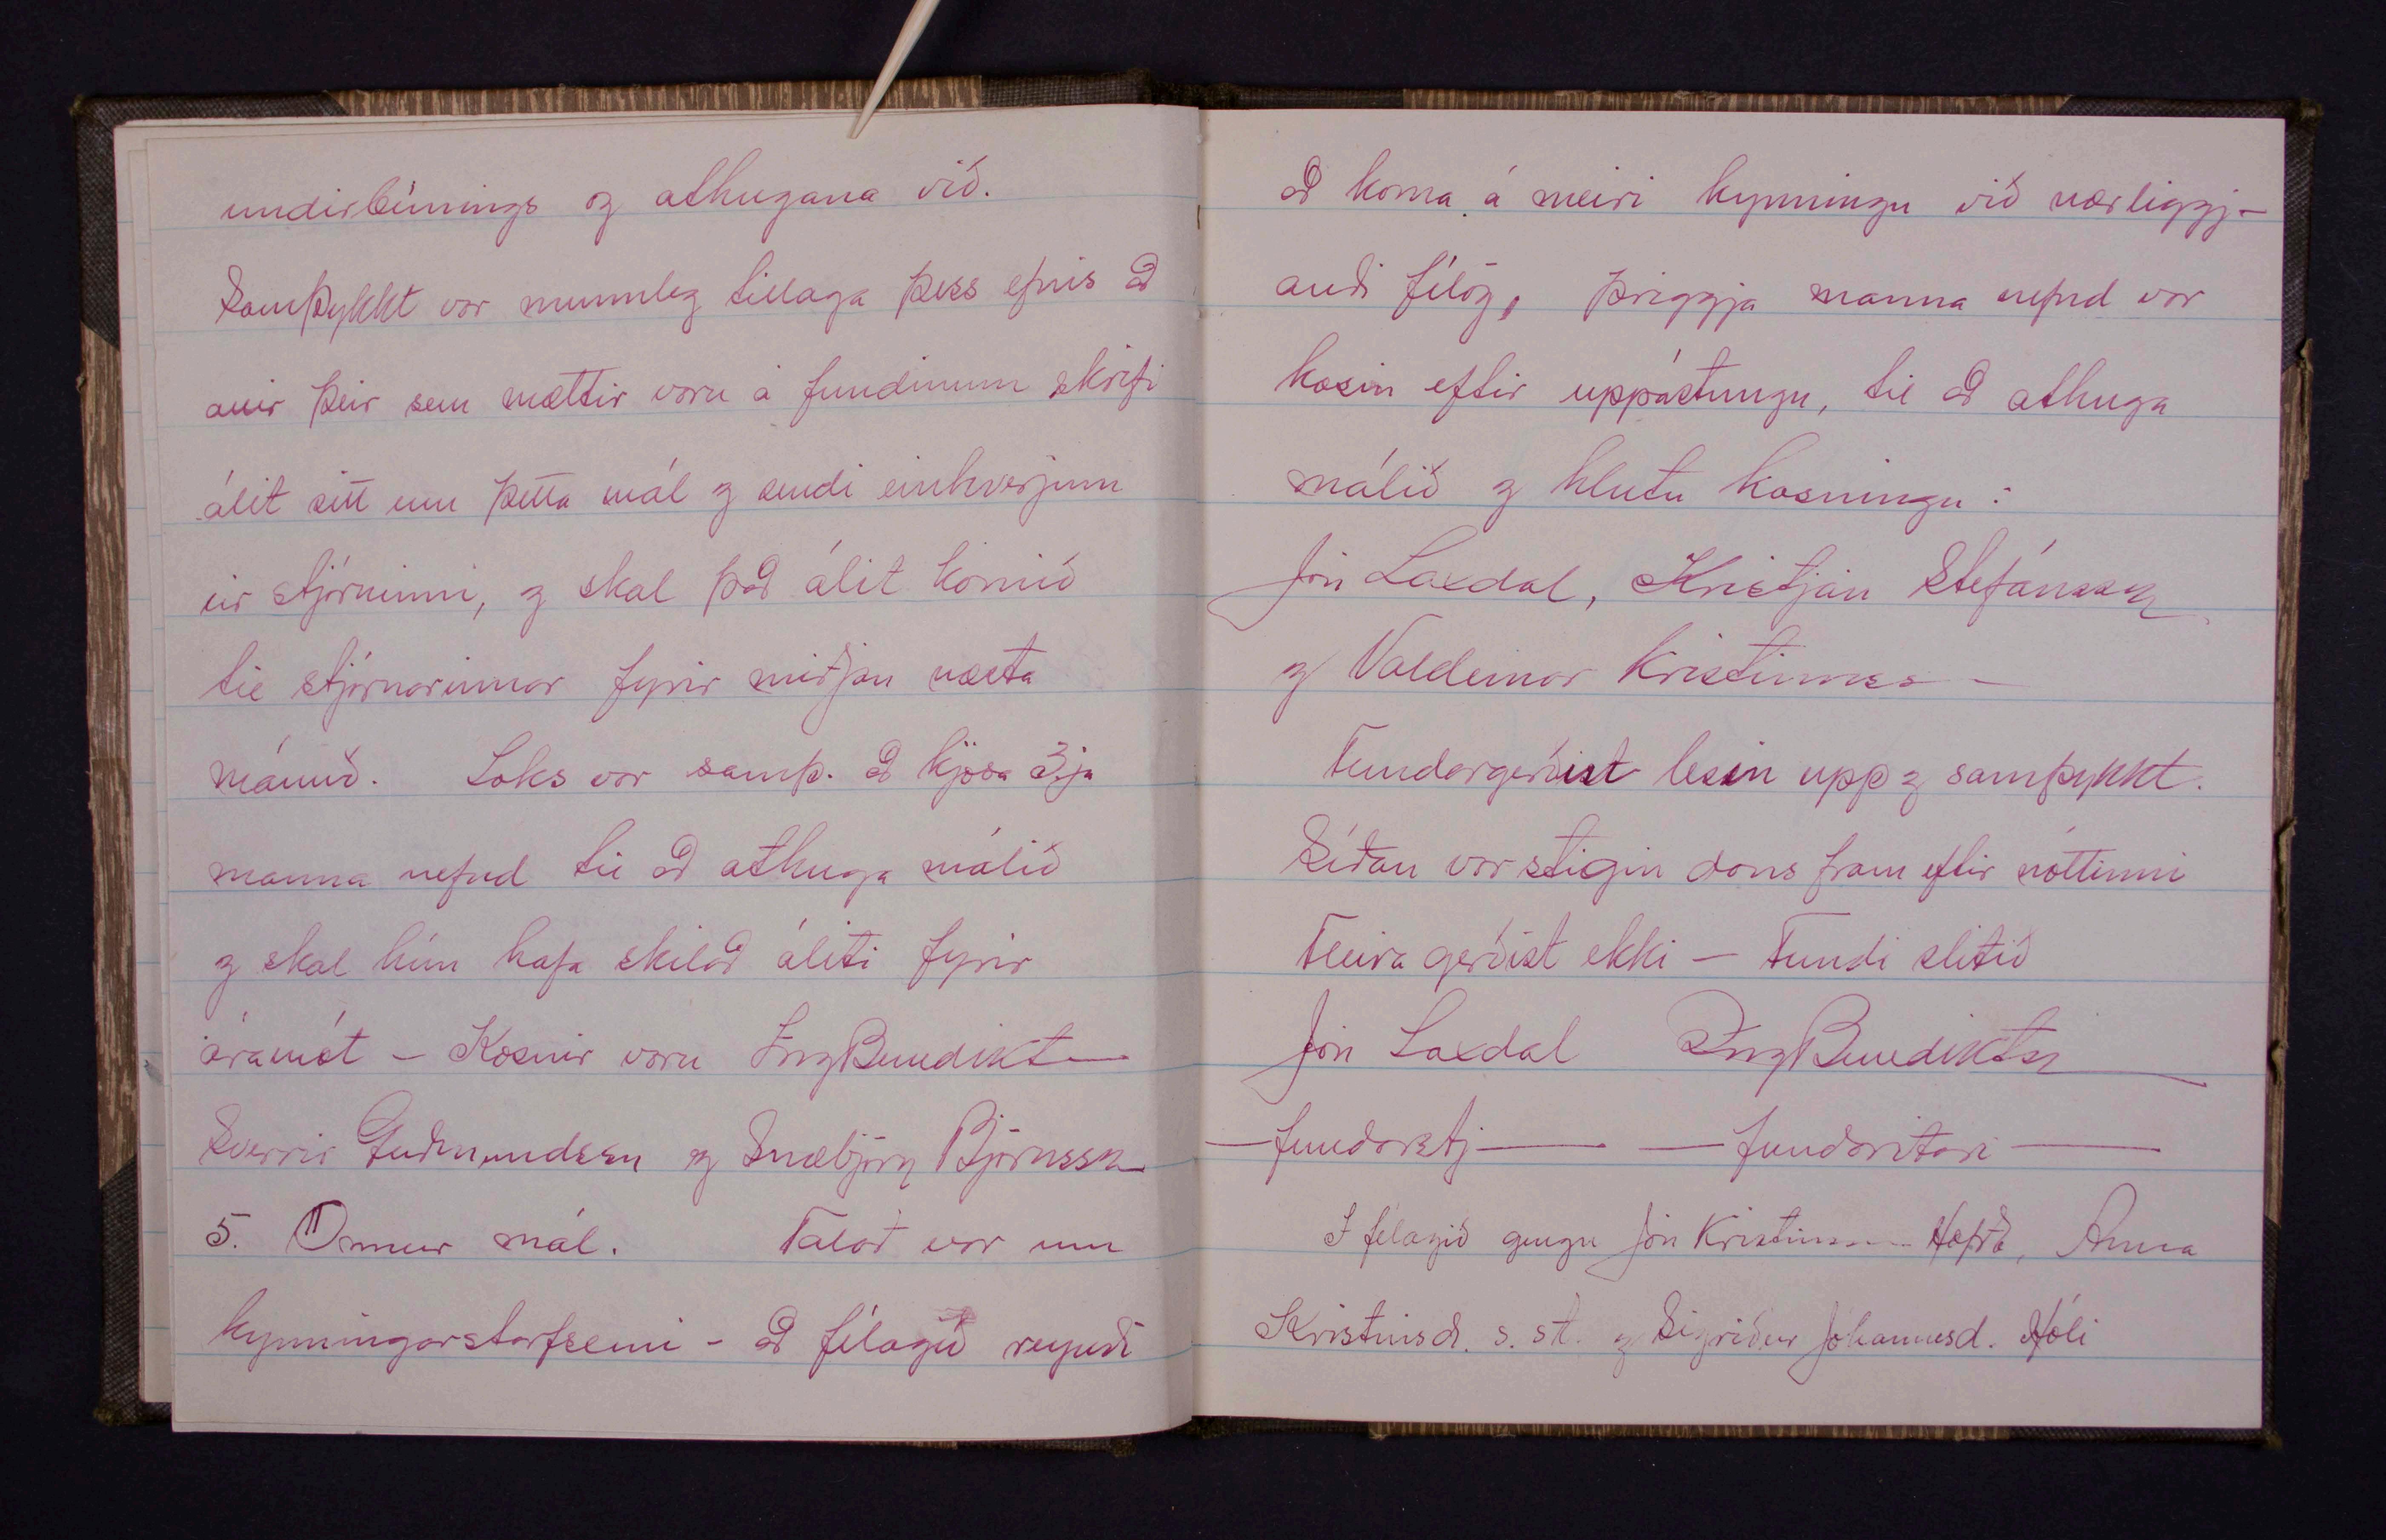 undirbúnings og athugana við.
Samþykkt var munnleg tillaga þess efnis að
allir þeir sem mættir voru á fundinum skrifi
álit sitt um þetta mál og sendi einhverjum
úr stjórninni, og skal það álit komið
til stjórnarinnar fyrir miðjan næsta
mánuð. Loks var samþ. að kjósa 3ja
manna nefnd til að athuga málið
og skal hún hafa skilað áliti fyrir
áramót – Kosnir voru Ing Benedikts
Sverrir Guðmundssn og Snæbjörn Björnssn
5. Önnur mál. Talað var um
kynningarstarfsemi – að félagið reyndi
að koma á meiri kynningu við nærliggj-
andi félög, þriggja manna nefnd var
kosin eftir uppástungu, til að athuga
málið og hlutu kosningu:
Jón Laxdal, Kristján Stefánssn
og Valdimar Kristinss –
Fundargerðist lesin upp og samþykkt.
Síðan var stigin dans fram eftir nóttinni
Fleira gerðist ekki – Fundi slitið
Jón Laxdal Ing Benediktss
– fundarstj – – fundaritari –
Í félagið gengu Jón Kristinss Höfða, Anna
Kristinsd. s. st. og Sigríður Jóhannesd. Hóli